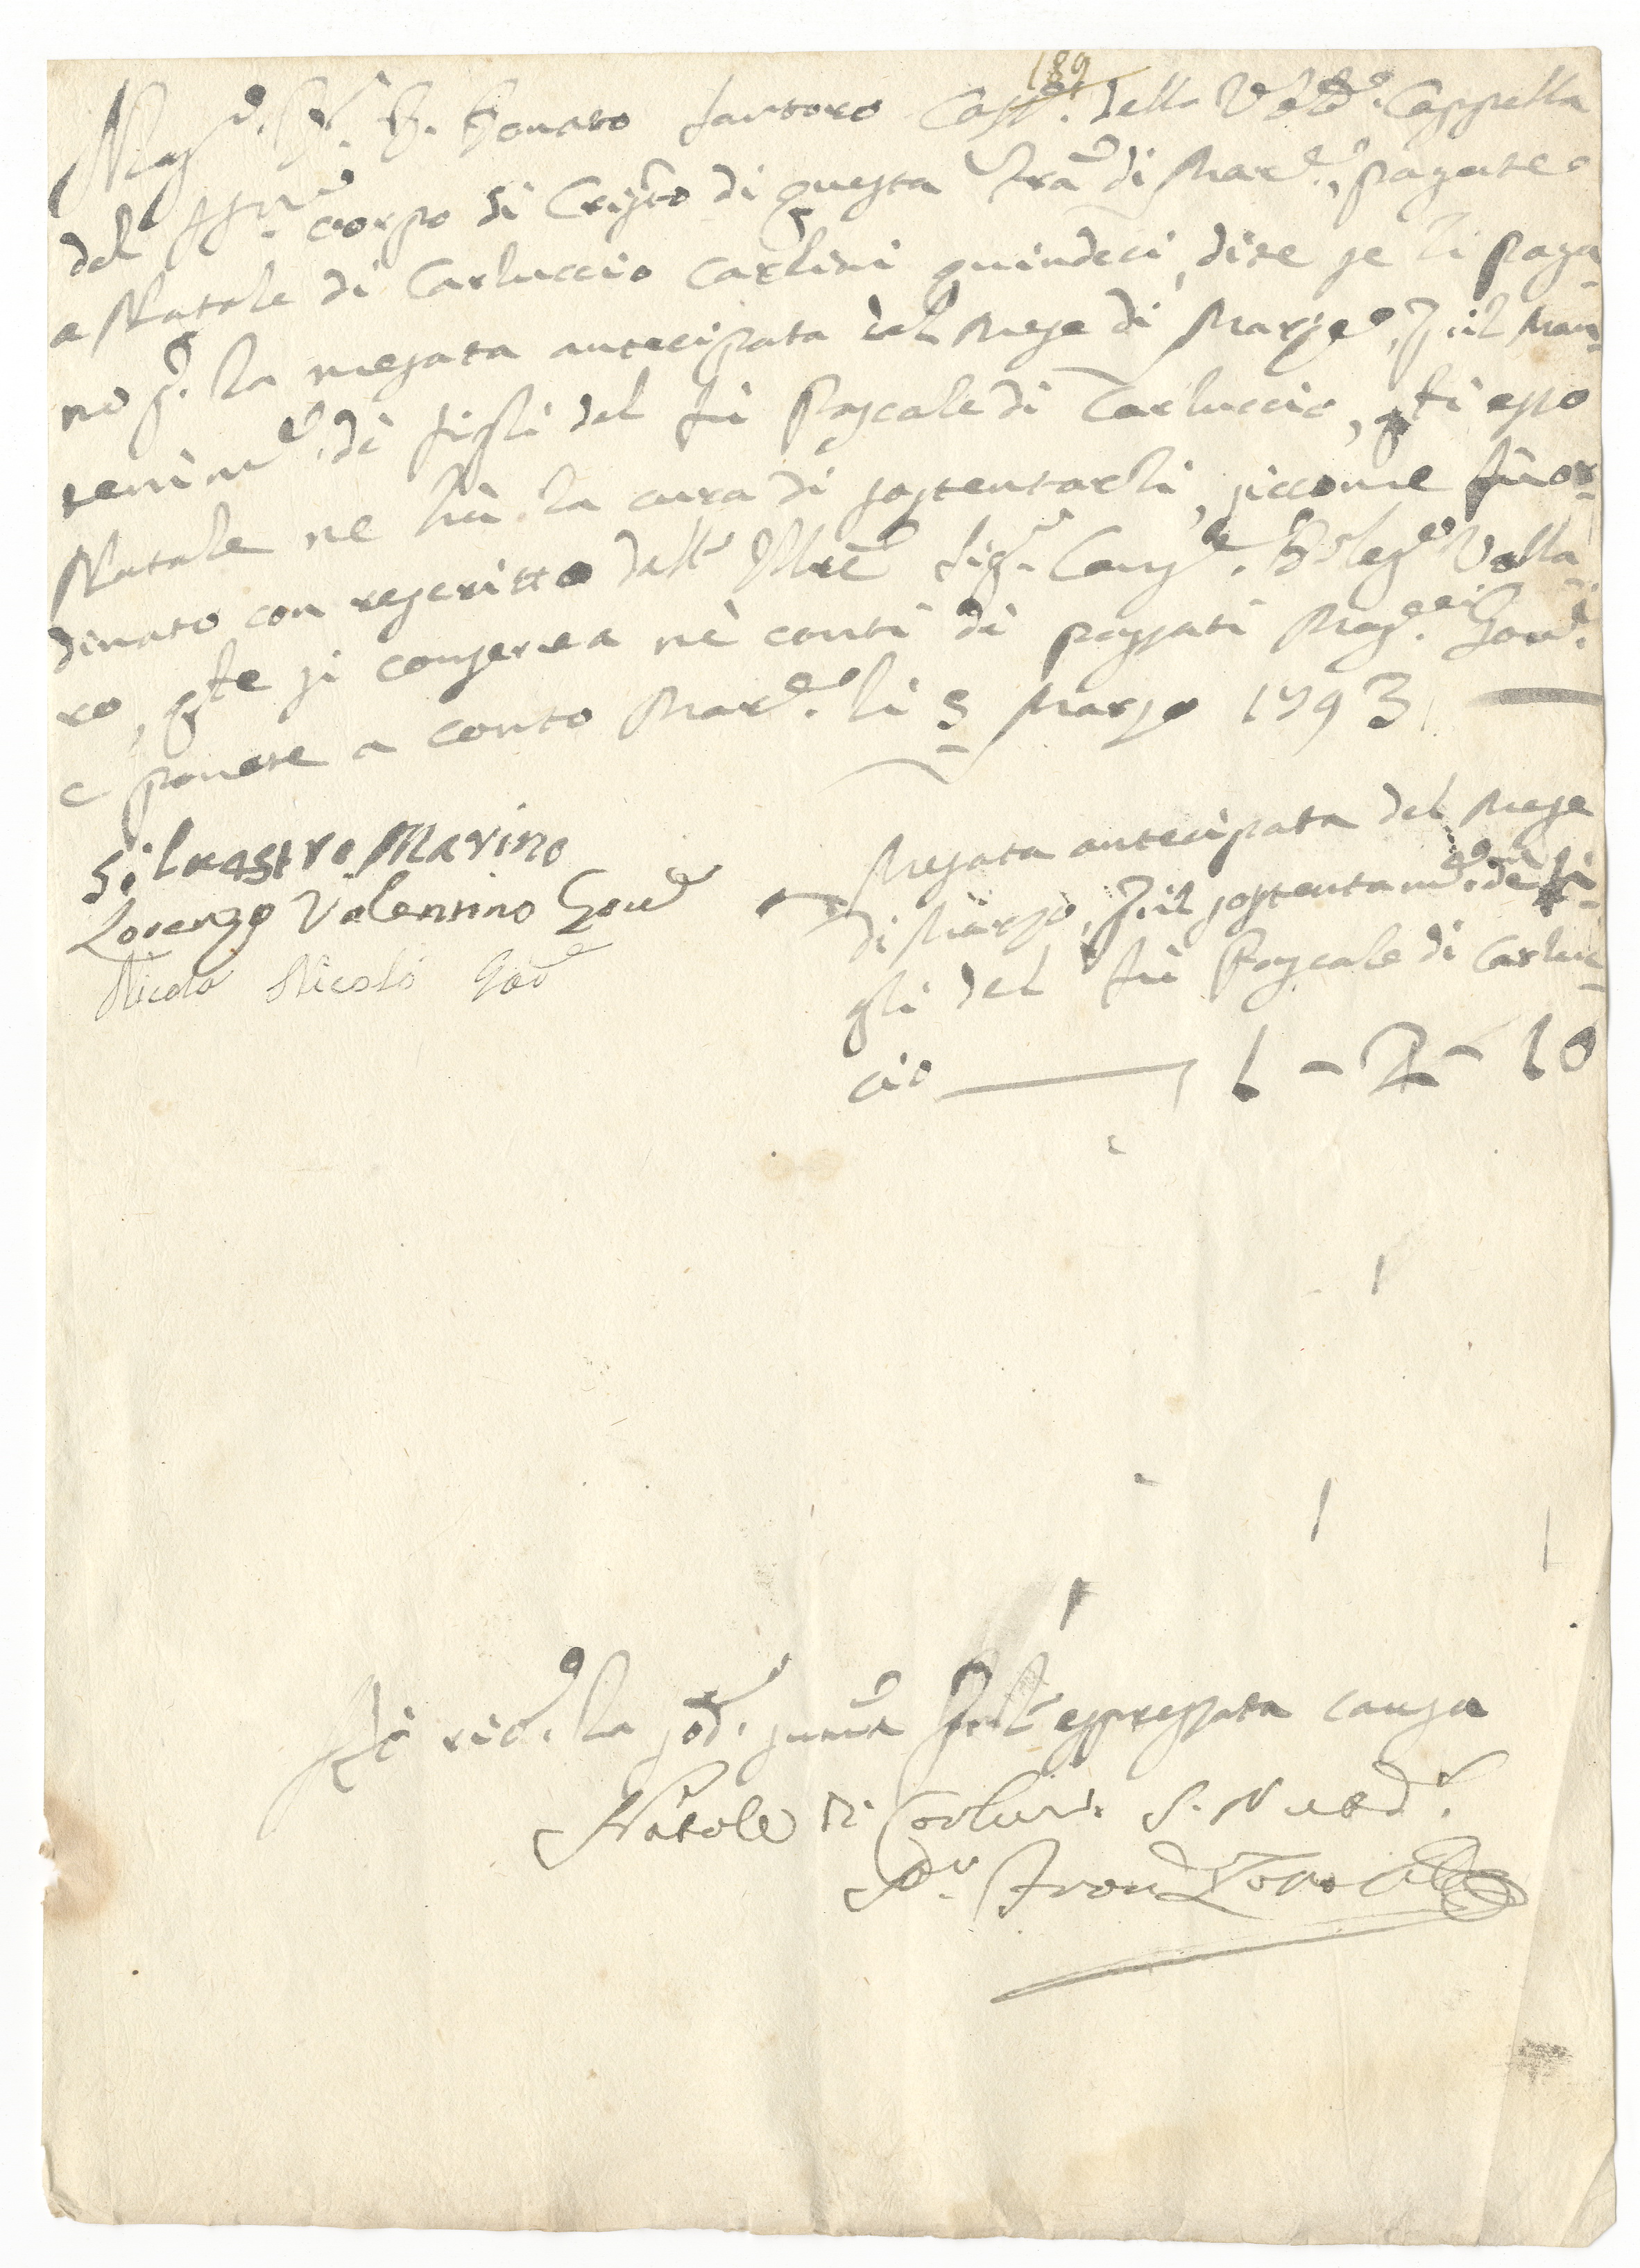 189
Mag.co Sr. D. Donato Santoro Cass.re della Ve.de Cappella
del SSmo. corpo di Cristo di questa Tra di Mar.e, pagate
a Natale di Carluccio Carlini quindeci, dite se li paga-
no p. la mesata antecipata del Mese di Marzo, p. il man-
tenim.to di figli del fù Pascale di Carluccio, q.ti esso
Natale ne hà la cura di sostentarli, siccome fù or-
dinato con rescritto dall' Illre Sig. Cons.re Deleg.to Valla-
ro, q.te si conserva nè conti di passati Mag.ci Gov.ri
e ponete a conto Mar.e li 3 Marzo 1793
Siluestro Marino
Lorenzo Valentino Gov.e
Nicola Nicolò Gov.e
Mesata antecipata del Mese
di Marzo, p. il sostentam.to de fi-
gli del fù Pascale di Carluc-
cio 1 - 2 - 10
Hò ric.o la sod.a summa p. l' espressata causa
Natale di Carluc.